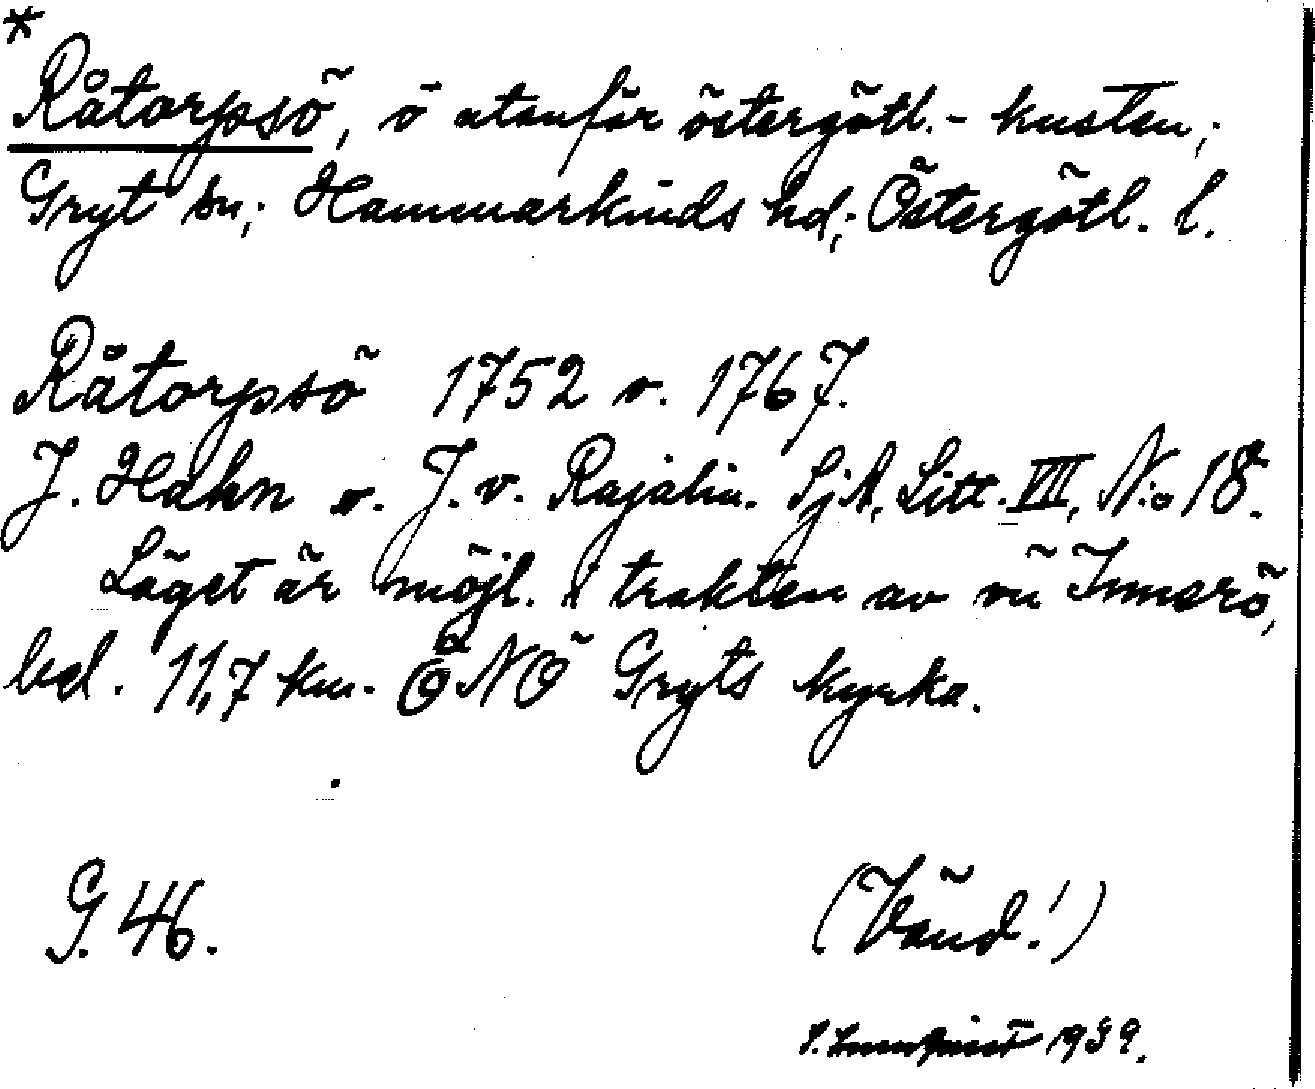 *
Råtorpsö, ö utanför östergötl.-kusten;
Gryt sn; Hammarkinds hd; Östergötl. l.
Råtorpsö 1752 o. 1767.
J. Hahn o. J. v. Rajalin. SjA, Litt. VII, N:o 18.
Läget är möjl. i trakten av ön Innerö,
bel. 11,7 km. ÖNÖ Gryts kyrka.
G. 46.
(Vänd!)
1939.